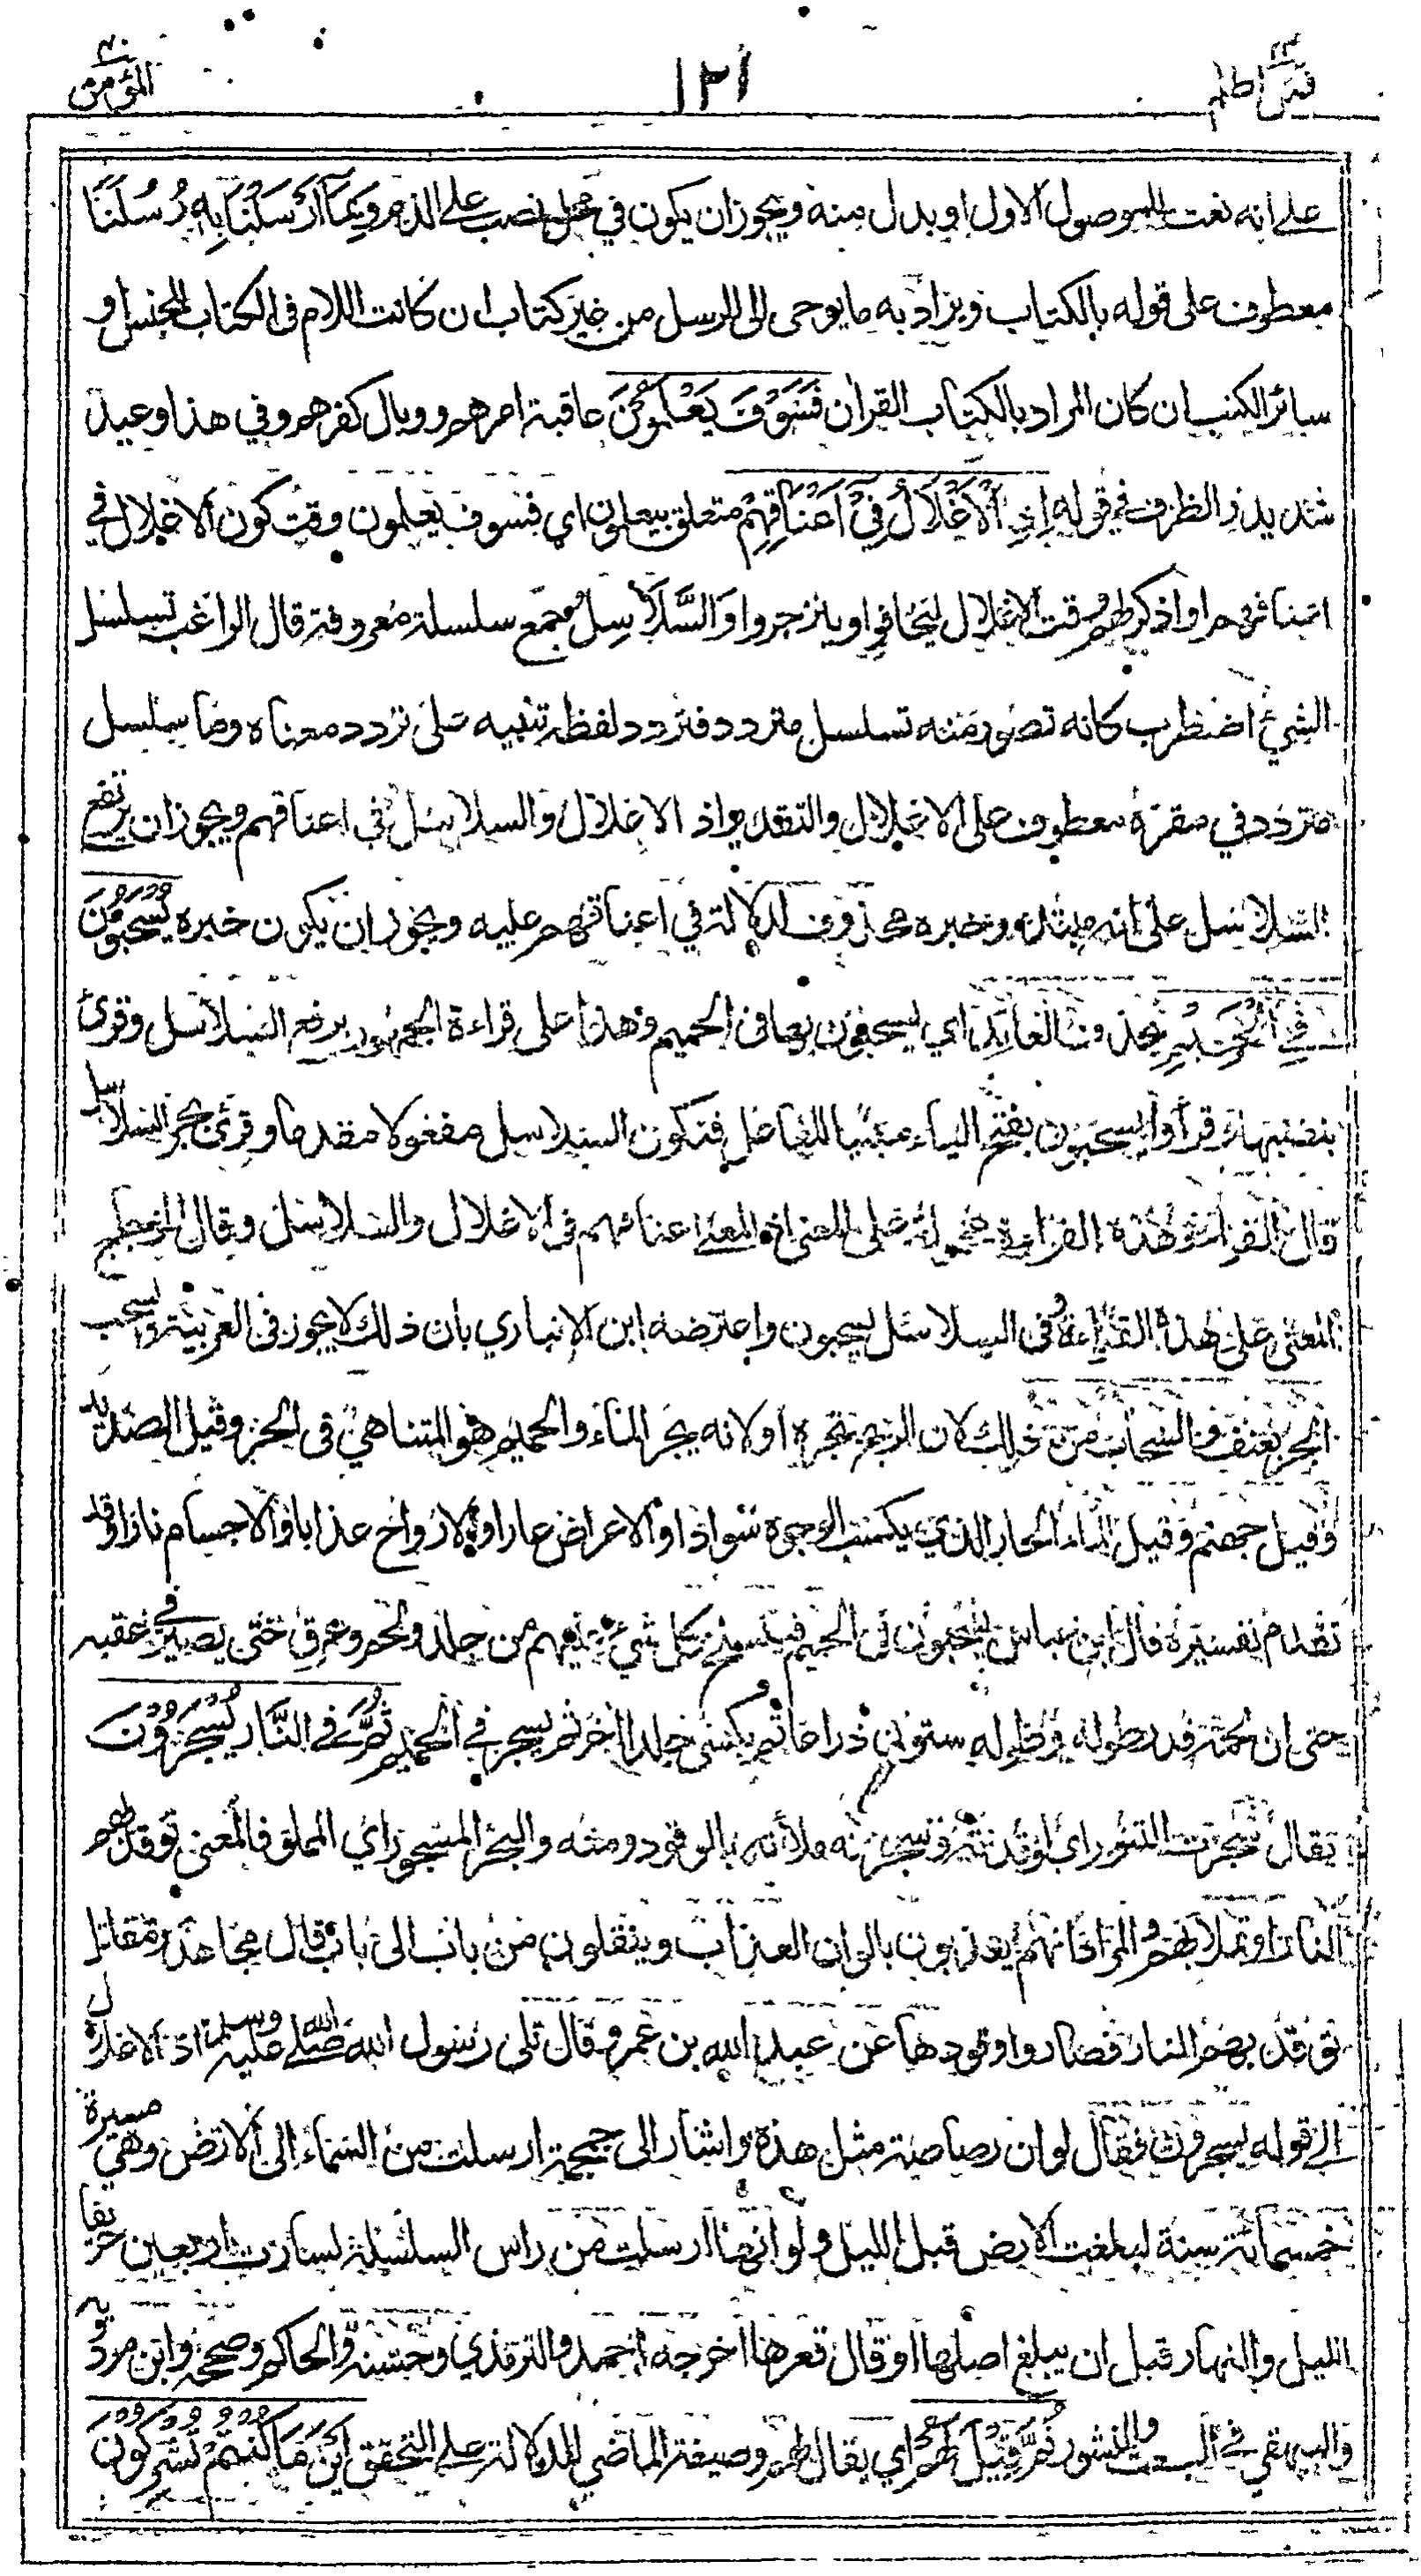 فمن اظلم ١٢١ المؤمن ٤٠
على انه نعت للموصول الاول او بدل منه ويجوز ان يكون في محل نصب على الذم وَبِمَا أَرْسَلْنَا بِهِ رُسُلَنَا
معطوف على قوله بالكتاب ويراد به ما يوحى الى الرسل من غير كتاب ان كانت اللام في الكتاب للجنس او
سائر الكتب ان كان المراد بالكتاب القران فَسَوْفَ يَعْلَمُوْنَ عاقبة امرهم ووبال كفرهم وفي هذا وعيد
شديد والظرف في قوله إِذِ الْأَغْلَالُ فِي أَعْنَاقِهِمْ متعلق بيعلمون اي فسوف يعلمون وقت كون الاغلال في
اعناقهم او اذكر لهم وقت الاغلال ليخافوا وينزجروا وَالسَّلَاسِلُ جمع سلسلة معروفة قال الراغب تسلسل
الشيئ اضطرب كانه تصور منه تسلسل متردد فتردد لفظه تنبيه على تردد معناه وماء سلسل
متردد في مقره معطوف على الاغلال والتقدير اذ الاغلال والسلاسل في اعناقهم ويجوز ان يرتفع
السلاسل على انه مبتدء وخبره محذوف لدلالة في اعناقهم عليه ويجوز ان يكون خبره يُسْحَبُوْنَ
فِي الْحَمِيْمِ بحذف العايد اي يسحبون بها في الحميم وهذا على قراءة الجمهور برفع السلاسل وقرئ
بنصبها وقرأوا يسحبون بفتح الياء مبنيا للفاعل فتكون السلاسل مفعولا مقدما وقرئ بجر السلاسل
قال الفراء وهذه القراءة محمولة على المعنى اذ المعنى اعناقهم في الاغلال والسلاسل وقال الزجاج
المعنى على هذه القراءة وفي السلاسل يسحبون واعترضه ابن الانباري بان ذلك لا يجوز في العربية والسحب
الجر بعنف والسحاب من ذلك لان الريح تجره او لانه يجر الماء والحميم هو المتناهي في الحر وقيل الصديد
وقيل جهنم وقيل الماء الحار الذي يكسب الوجوه سوادا والاعراض عارا والارواح عذابا والاجسام نارا وقد
تقدم تفسيره قال ابن عباس يسحبون في الحميم فينسلخ كل شيئ عليهم من جلد ولحم وعرق حتى يصير في عقبه
حتى ان لحمه قدر طوله وطوله ستون ذراعا ثم يكسى جلدا اخر ثم يسجر في الحميم ثُمَّ فِي النَّارِ يُسْجَرُوْنَ
يقال سجرت التنور اي اوقدته وسجرته ملأته بالوقود ومنه والبحر المسجور اي المملو فالمعنى توقد بهم
النار او تملأ بهم والمراد انهم يعذبون بالوان العذاب وينقلون من باب الى باب قال مجاهد ومقاتل
توقد بهم النار فصاروا وقودها عن عبد الله بن عمرو قال تلى رسول الله صلى الله عليه وسلم اذ الاغلال
الى قوله يسجرون فقال لو ان رصاصة مثل هذه واشار الى جمجمة ارسلت من السماء الى الارض وهي مسيرة
خمسمائة سنة لبلغت الارض قبل الليل ولو انها ارسلت من راس السلسلة لسارت اربعين خريفا
الليل والنهار قبل ان يبلغ اصلها او قال قعرها اخرجه احمد والترمذي وحسنه والحاكم وصححه وابن مردويه
والبيهقي في البعث والنشور ثُمَّ قِيْلَ لَهُمْ اي يقال لهم وصيغة الماضي للدلالة على التحقق أَيْنَ مَا كُنْتُمْ تُشْرِكُوْنَ